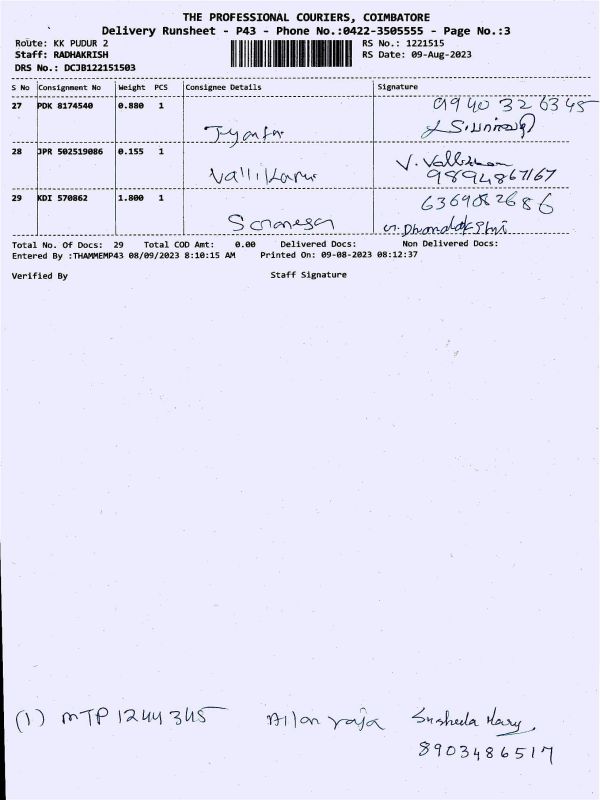 THE PROFESSIONAL COURIERS, COIMBATORE
Delivery Runsheet - P43 - Phone No.:0422-3505555 - Page No.:3
Route: KK PUDUR 2 RS No.: 1221515
Staff: RADHAKRISH RS Date: 09-Aug-2023
DRS No.: DCJB122151503
S No Consignment No Weight PCS Consignee Details Signature
27 PDK 8174540 0.880 1 9940326345
28 JPR 502519086 0.155 1 V.
9894867167
29 KDI 570862 1.800 1 6369082686
Total No. Of Docs: 29 Total COD Amt: 0.00 Delivered Docs: Non Delivered Docs:
Entered By :THAMMEMP43 08/09/2023 8:10:15 AM Printed On: 09-08-2023 08:12:37
Verified By Staff Signature
(1) MTP 1244345 raja Susheela Mary
8903486517